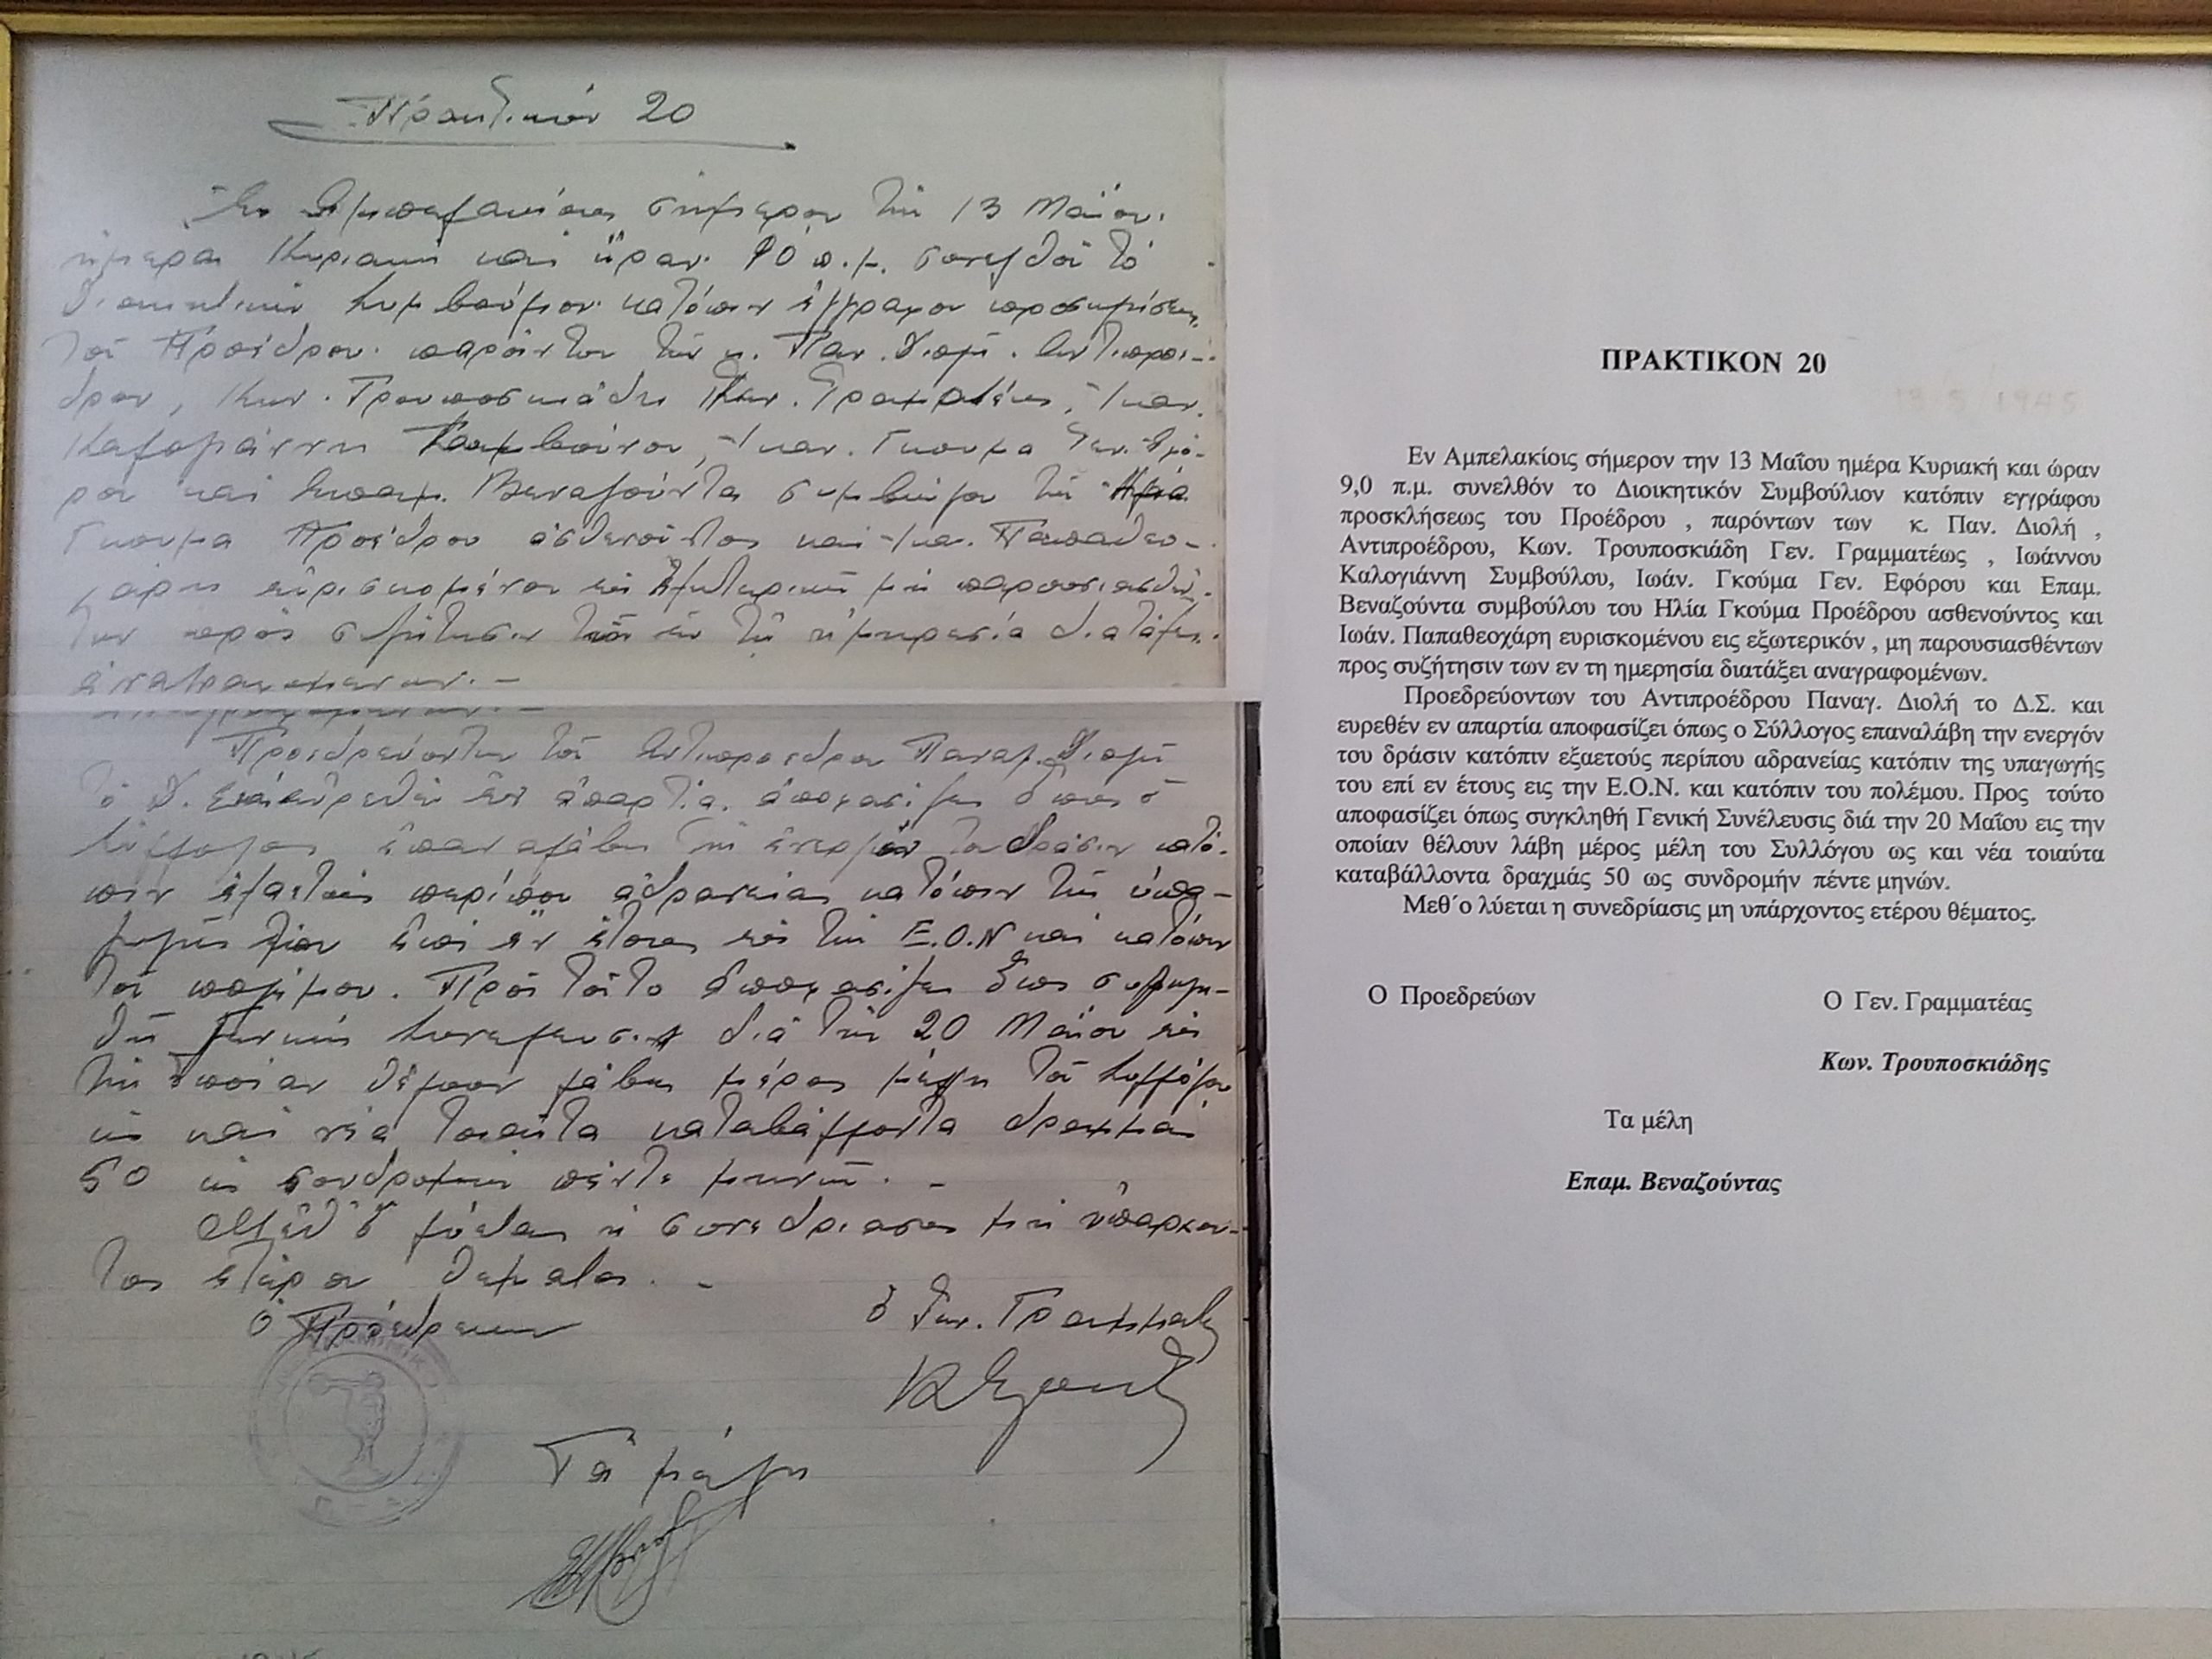 Πρακτικόν 20
Εν Αμπελακίοις σήμερον την 13 Μαΐου
ημέρα Κυριακή και ώραν 90 π.μ. συνελθόν το
Διοικητικόν Συμβούλιον κατόπιν εγγράφου προσκλήσεως
του Προέδρου παρόντων των κ. Παν. Διολή. Αντιπροέ-
δρου, Κων. Τρουποσκιάδη Γεν. Γραμματέως, Ιωαν.
Καλογιάννη Συμβούλου, Ιωαν. Γκουμα Γεν. Εφό-
ρου και Επαμ. Βεναζούντα συμβούλου του Ηλία
Γκουμα Προέδρου ασθενούντος και Ιωα. Παπαθεο-
χάρη ευρισκομένου εις εξωτερικόν μη παρουσιασθέν-
των προς συζήτησιν των εν τη ημερησία διατάξει
αναγραφομένων. -
Προεδρεύοντων του Αντιπροέδρου Παναγ. Διολή
το Δ. Σ. και ευρεθέν εν απαρτία αποφασίζει όπως ο
Σύλλογος επαναλάβη την ενεργόν του δράσιν κατό-
πιν εξαετούς περίπου αδρανείας κατόπιν της υπα-
γωγής του επί εν έτους εις την Ε.Ο.Ν και κατόπιν
του πολέμου. Προς τούτο αποφασίζει όπως συγκλη-
θή Γενική Συνέλευσις διά την 20 Μαΐου εις
την οποίαν θέλουν λάβη μέρος μέλη του Συλλόγου
ως και νέα τοιαύτα καταβάλλοντα δραχμάς
50 ως συνδρομήν πέντε μηνών. -
Μεθ' ο λύεται η συνεδρίασις μη υπάρχον-
τος ετέρου θέματος. -
ο Προεδρεύων
ο Γεν. Γραμματέας
Τα μέλη
ΠΡΑΚΤΙΚΟΝ 20
13 5 1945
Εν Αμπελακίοις σήμερον την 13 Μαΐου ημέρα Κυριακή και ώραν
9,0 π.μ. συνελθόν το Διοικητικόν Συμβούλιον κατόπιν εγγράφου
προσκλήσεως του Προέδρου , παρόντων των κ. Παν. Διολή ,
Αντιπροέδρου, Κων. Τρουποσκιάδη Γεν. Γραμματέως , Ιωάννου
Καλογιάννη Συμβούλου, Ιωάν. Γκούμα Γεν. Εφόρου και Επαμ.
Βεναζούντα συμβούλου του Ηλία Γκούμα Προέδρου ασθενούντος και
Ιωάν. Παπαθεοχάρη ευρισκομένου εις εξωτερικόν , μη παρουσιασθέντων
προς συζήτησιν των εν τη ημερησία διατάξει αναγραφομένων.
Προεδρεύοντων του Αντιπροέδρου Παναγ. Διολή το Δ.Σ. και
ευρεθέν εν απαρτία αποφασίζει όπως ο Σύλλογος επαναλάβη την ενεργόν
του δράσιν κατόπιν εξαετούς περίπου αδρανείας κατόπιν της υπαγωγής
του επί εν έτους εις την Ε.Ο.Ν. και κατόπιν του πολέμου. Προς τούτο
αποφασίζει όπως συγκληθή Γενική Συνέλευσις διά την 20 Μαΐου εις την
οποίαν θέλουν λάβη μέρος μέλη του Συλλόγου ως και νέα τοιαύτα
καταβάλλοντα δραχμάς 50 ως συνδρομήν πέντε μηνών.
Μεθ΄ο λύεται η συνεδρίασις μη υπάρχοντος ετέρου θέματος.
Ο Προεδρεύων
Ο Γεν. Γραμματέας
Κων. Τρουποσκιάδης
Τα μέλη
Επαμ. Βεναζούντας